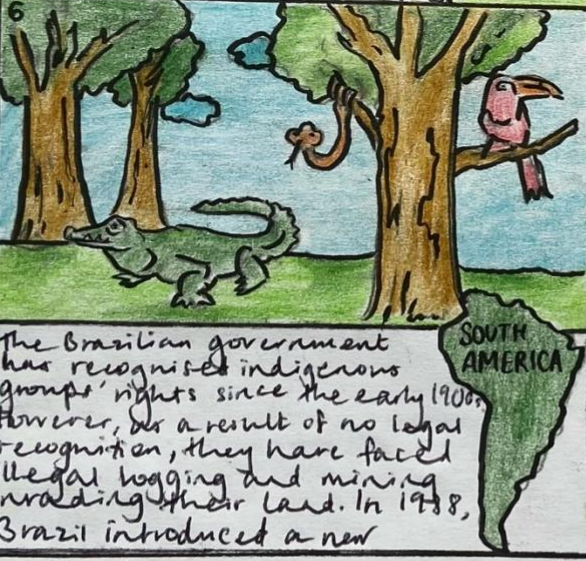 6
SOUTH
AMERICA
The Brazilian government
has recognised indigenous
groups' rights since the early 1900s.
However, as a result of no legal
recognition, they have faced
illegal logging and mining
invading their land. In 1988,
Brazil introduced a new